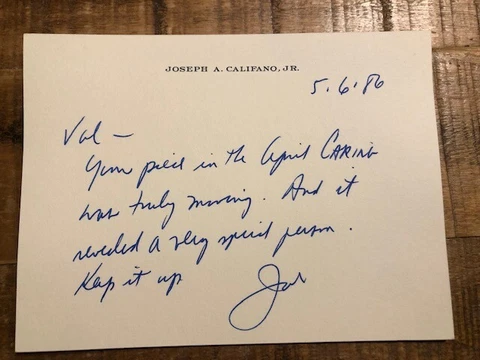 JOSEPH A. CALIFANO, JR.
5.6.86
Val —
Your piece in the April CARING
was truly moving. And it
revealed a very special person.
Keep it up
Joe